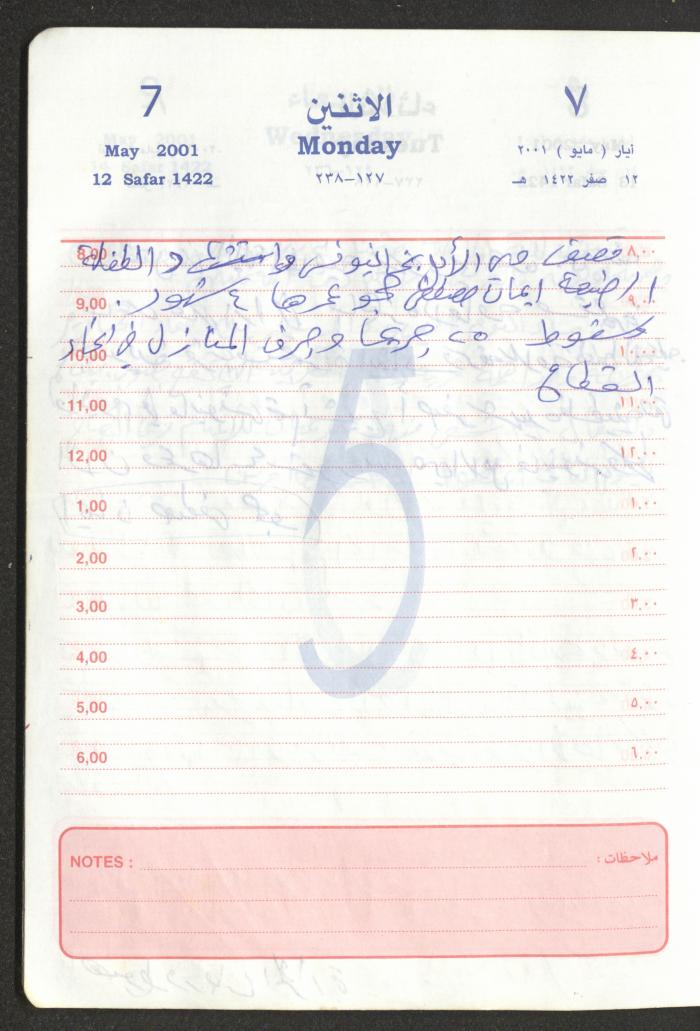 7
الاثنين
٧
May 2001
Monday
أيار ( مايو ) ٢٠٠١
12 Safar 1422
١٢٧–٢٣٨
١٢ صفر ١٤٢٢ هـ
قصيف واستشهاد الطفلة
الرضيعة ايمان حجو عمرها ٤ شهور .
سقوط ٢٥ جريحا وجرف المنازل في انحاء
القطاع
8,00 ٨,٠٠
9,00 ٩,٠٠
10,00 ١٠,٠٠
11,00 ١١,٠٠
12,00 ١٢,٠٠
1,00 ١,٠٠
2,00 ٢,٠٠
3,00 ٣,٠٠
4,00 ٤,٠٠
5,00 ٥,٠٠
6,00 ٦,٠٠
5
NOTES : ملاحظات :